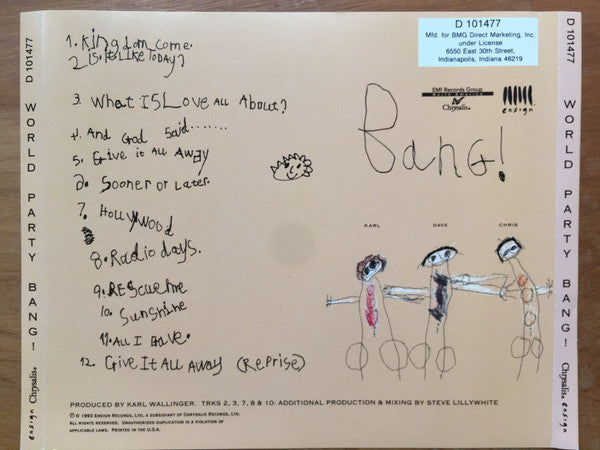 D 101477
WORLD PARTY
BANG!
ensign Chrysalis.
1. Kingdom Come.
2 IS It LIKE TODAY?
3. What IS Love All About?
4. And God Said.......
5. Give it All Away
6. Sooner or Later.
7. Hollywood
8. Radio days.
9. RESCUE me
10. Sunshine
11. All I Gave.
12. Give It All Away (Reprise)
D 101477
Mfd. for BMG Direct Marketing, Inc.
under License
6550 East 30th Street,
Indianapolis, Indiana 46219
EMI Records Group
North America
Chrysalis.
ensign
BanG!
KARL DAVE CHRIS
PRODUCED BY KARL WALLINGER. TRKS 2, 3, 7, 8 & 10: ADDITIONAL PRODUCTION & MIXING BY STEVE LILLYWHITE
℗ © 1993 ENSIGN RECORDS, LTD, A SUBSIDIARY OF CHRYSALIS RECORDS, LTD.
ALL RIGHTS RESERVED. UNAUTHORIZED DUPLICATION IS A VIOLATION OF
APPLICABLE LAWS. PRINTED IN THE U.S.A.
D 101477
WORLD PARTY
BANG!
Chrysalis. ensign